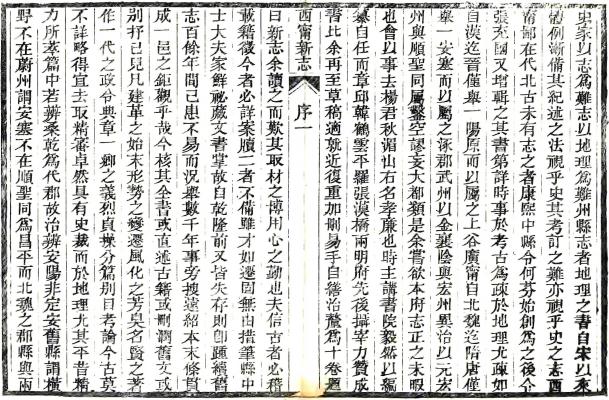 史家以志爲難志以地理爲難州縣志者地理之書自宋以來
體例漸備其紀述之法視乎史其考訂之難亦視乎史之志西
甯郡在北古未有志之者康熙中縣令何芬始創爲之後令
張充國又增輯之其書第詳時事於考古爲疎於地理尤疎如
自漢迄晉僅舉一陽原而以屬之上谷廣甯自北魏迄隋唐僅
舉一安塞而以屬之涿郡武州以金襄陰與宏州異治以元宏
州與順聖同屬鑿空謬妄大都類是余嘗欲本府志正之未暇
也會以事去楊君秋湄山右名孝廉也時主講書院毅然以編
纂自任而章邱韓鶴雲平羅張漢橋兩明府先後攝宰力贊成
書比余再至草稿適就近復重加刪易手自繕治釐爲十卷題
西甯新志
序一
曰新志余讀之而歎其取材之博用心之勤也夫信古者必稽
載籍徵今者必詳案牘二者不備雖才如遷固無由措筆縣中
士大夫家鮮祕藏文書掌故自乾隆前又皆失存則卽踵續舊
志百餘年間已患不易而況舉數千年事旁搜遠紹本末條貫
成一邑之鉅觀乎哉今核其全書或直述古籍或刪潤舊文或
別抒己見凡建革之始末形勢之變遷風化之芳臭名賢之著
作一代之政令典章一鄉之義烈貞操分篇别目考論今古莫
不詳略得宜去取精審卓然具有史裁而於地理尤其平昔精
力所萃篇中若辨桑乾爲代郡故治辨安陽非定安舊縣謂橫
野不在蔚州謂安塞不在順聖同爲昌平而北魏之郡縣與兩